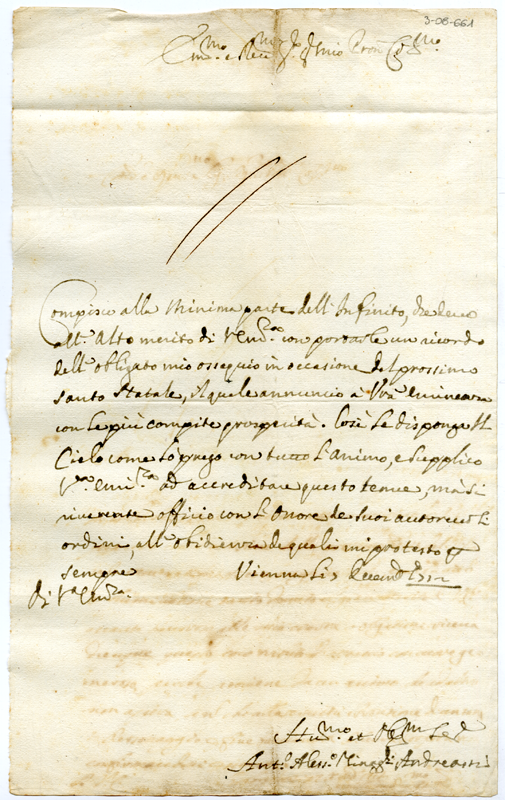 3-08-661
Em.mo e Rev.mo Sig.r Sig.r mio Pron Col.mo
Compisco alla Minima parte dell'Infinito, che deuo
all'Alto merito di V. Em.za con portarle un ricordo
dell'obligato mio ossequio in occasione del prossimo
santo Natale, il quale annuncio à Vos.a Eminenza
con le più compite prosperità. Così Le disponga Il
Cielo come Lo prego con tutto L'animo, e supplico
V.ra Emi.za ad accreditare questo tenue, mà si
riuerente officio con L'Onore de suoi autoreuoli
ordini, all'obidienza de quali mi protesto
sempre Vienna Li Decemb.
Di V.a Em.za.
Hu.mo et
Ant.o Aless.o Andreassi